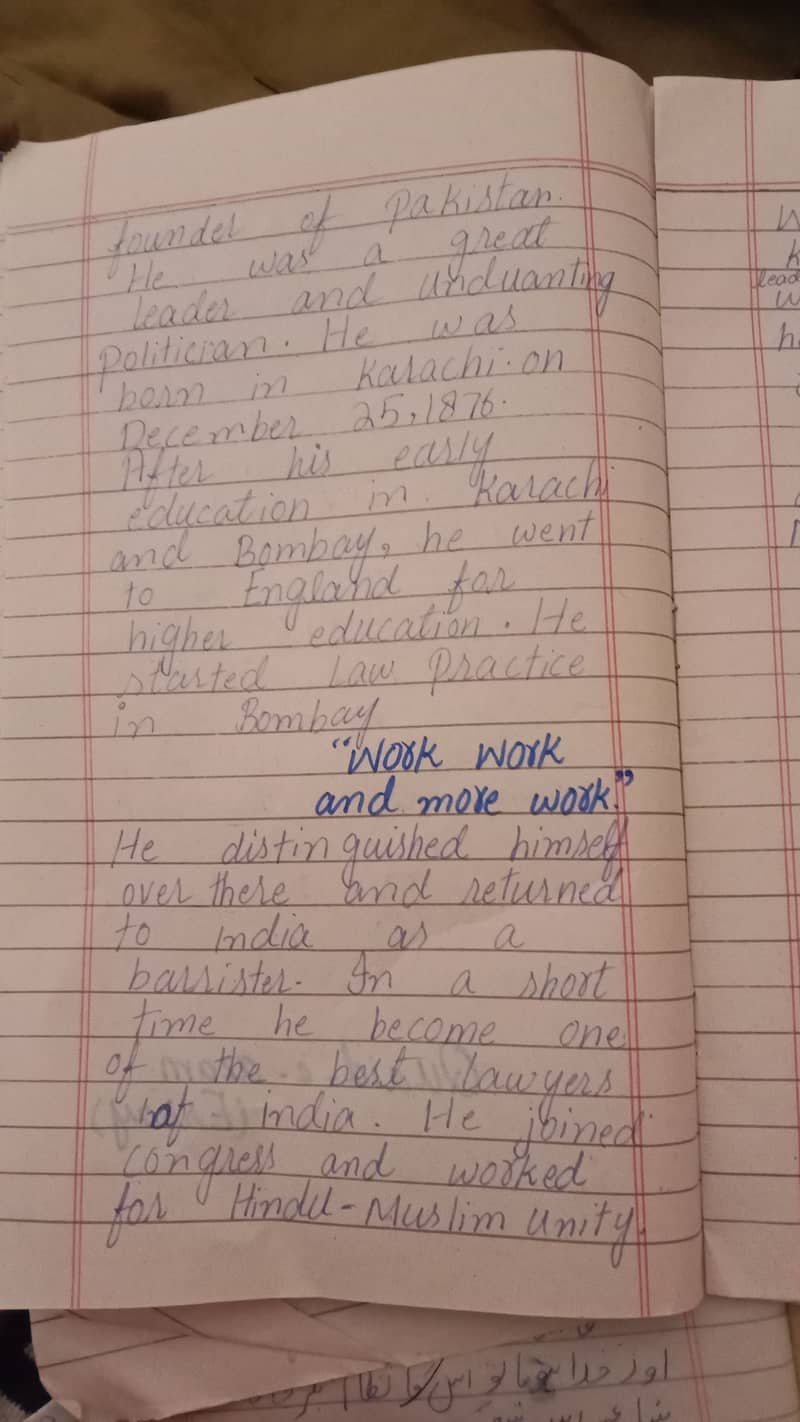 founder of Pakistan.
He was a great
leader and unduanting
politician. He was
born in Karachi. on
December 25, 1876.
After his early
education in. Karachi
and Bombay, he went
to England for
higher education. He
started Law Practice
in Bombay
"Work work
and more work."
He distinguished himself
over there and returned
to india as a
barrister. In a short
time he become one
of the best lawyers
of india. He joined
congress and worked
for Hindu-Muslim unity.
lead